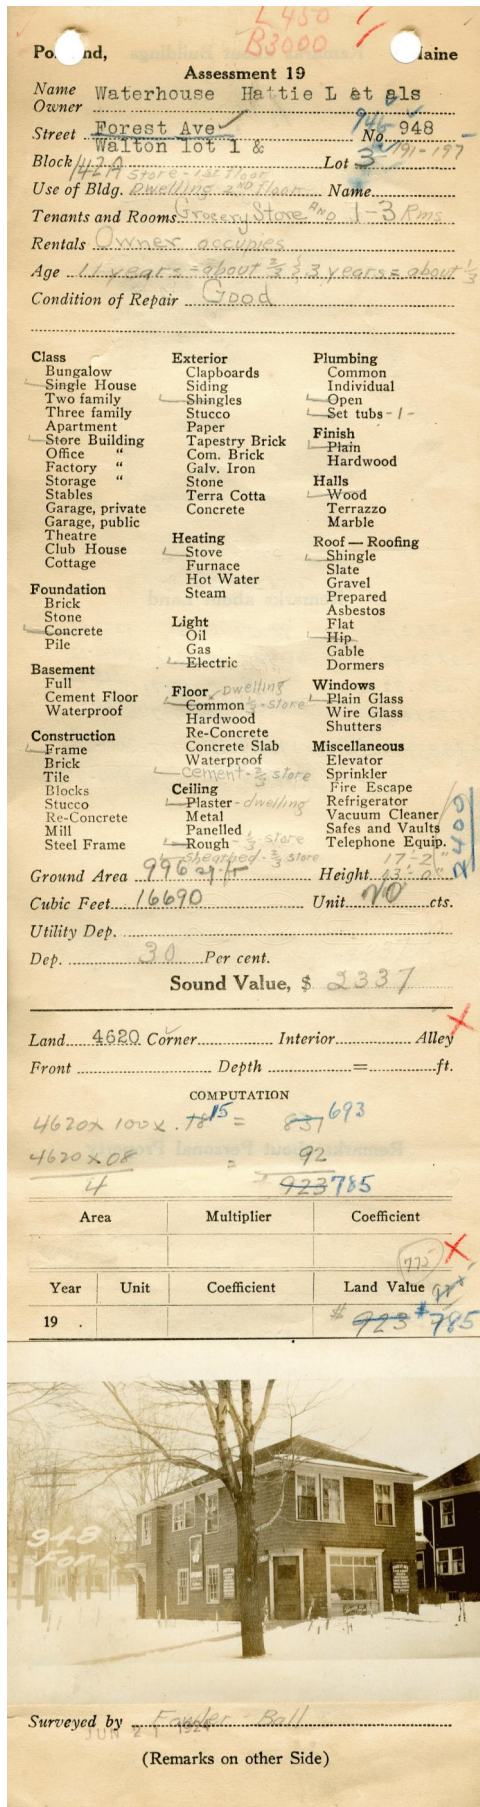 L 450
B3000
Po nd, Maine
Assessment 19
Name Owner Waterhouse Hattie L et als
Street Forest Ave No. 948
946
Walton lot 1 &
Block 142A Lot 3 191-197
Store - 1st floor
Use of Bldg. Dwelling 2ND floor Name
Tenants and Rooms Grocery Store AND 1-3 Rms
Rentals Owner occupies
Age 11 years = about 2/3 & 3 years = about 1/3
Condition of Repair Good
Class
Bungalow
Single House
Two family
Three family
Apartment
Store Building
Office "
Factory "
Storage "
Stables
Garage, private
Garage, public
Theatre
Club House
Cottage
Foundation
Brick
Stone
Concrete
Pile
Basement
Full
Cement Floor
Waterproof
Construction
Frame
Brick
Tile
Blocks
Stucco
Re-Concrete
Mill
Steel Frame
Exterior
Clapboards
Siding
Shingles
Stucco
Paper
Tapestry Brick
Com. Brick
Galv. Iron
Stone
Terra Cotta
Concrete
Heating
Stove
Furnace
Hot Water
Steam
Light
Oil
Gas
Electric
Floor Dwelling
Common 1/3 - store
Hardwood
Re-Concrete
Concrete Slab
Waterproof
Cement - 2/3 store
Ceiling
Plaster - dwelling
Metal
Panelled
Rough - 1/3 store
Sheathed - 2/3 store
Plumbing
Common
Individual
Open
Set tubs - 1 -
Finish
Plain
Hardwood
Halls
Wood
Terrazzo
Marble
Roof — Roofing
Shingle
Slate
Gravel
Prepared
Asbestos
Flat
Hip
Gable
Dormers
Windows
Plain Glass
Wire Glass
Shutters
Miscellaneous
Elevator
Sprinkler
Fire Escape
Refrigerator
Vacuum Cleaner
Safes and Vaults
Telephone Equip.
2400
17'-2"
Ground Area 996 sq. ft Height 13'-0"
Cubic Feet 16690 Unit 20 cts.
Utility Dep.
Dep. 30 Per cent.
Sound Value, $ 2337
Land 4620 Corner Interior Alley
Front Depth = ft.
COMPUTATION
4620 x 100 x .18 15 = 831 693
4620 x 08 = 92
4 923 785
Area Multiplier Coefficient
775
Year Unit Coefficient Land Value
19 . $ 923 $785
948
For
Surveyed by Fowler - Ball
JUN 21 1924
(Remarks on other Side)